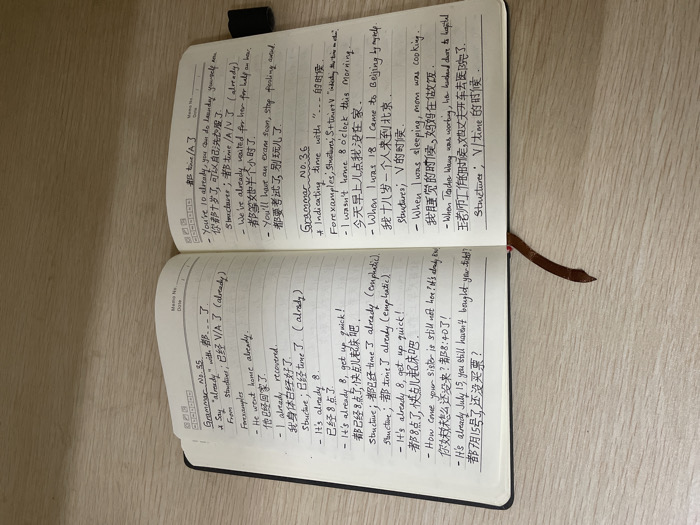 Memo No.
Date
Grammar No. 35
* Say "already" with 都 ---- 了
From structure, 已经 V/A 了 (already)
For examples
- He went home already.
他已经回家了.
- I already recovered.
我身体已经好了.
Structure; 已经 time 了 (already)
- It's already 8
已经8点了
- It's already 8, get up quick!
都已经8点了, 快点儿起床吧.
Structure; 都已经 time 了 already (emphatic)
structure; 都 time 了 already (emphatic)
- It's already 8, get up quick!
都8点了, 快点儿起床吧.
- How come your sister is still not here? It's already 8:40
你妹妹怎么还没来? 都8:40了!
- It's already July 15, you still haven't bought your ticket?
都7月15号了, 还没买票?
Memo No.
Date
都 time/A 了
- You're 10 already, you can do laundry yourself now.
你都十岁了, 可以自己洗衣服了.
Structures; 都 time/A/V 了 (already)
- We've already waited for her for half an hour.
都等她半个小时了.
- You'll have an exam soon, stop fooling around.
都要考试了, 别玩儿了.
Grammar No. 36
* Indicating time with "--- 的时候
For examples; Structures; S + time + V
- I wasn't home 8 o'clock this morning.
今天早上八点我没在家.
- When I was 18 I came to Beijing by myself
我十八岁一个人来到北京.
Structures; V 的时候
- When I was sleeping, mom was cooking.
我睡觉的时候, 妈妈在做饭.
- When teacher Wang was working, her husband drove to hospital
王老师工作的时候, 她丈夫开车去医院了.
Structures; V/time 的时候.